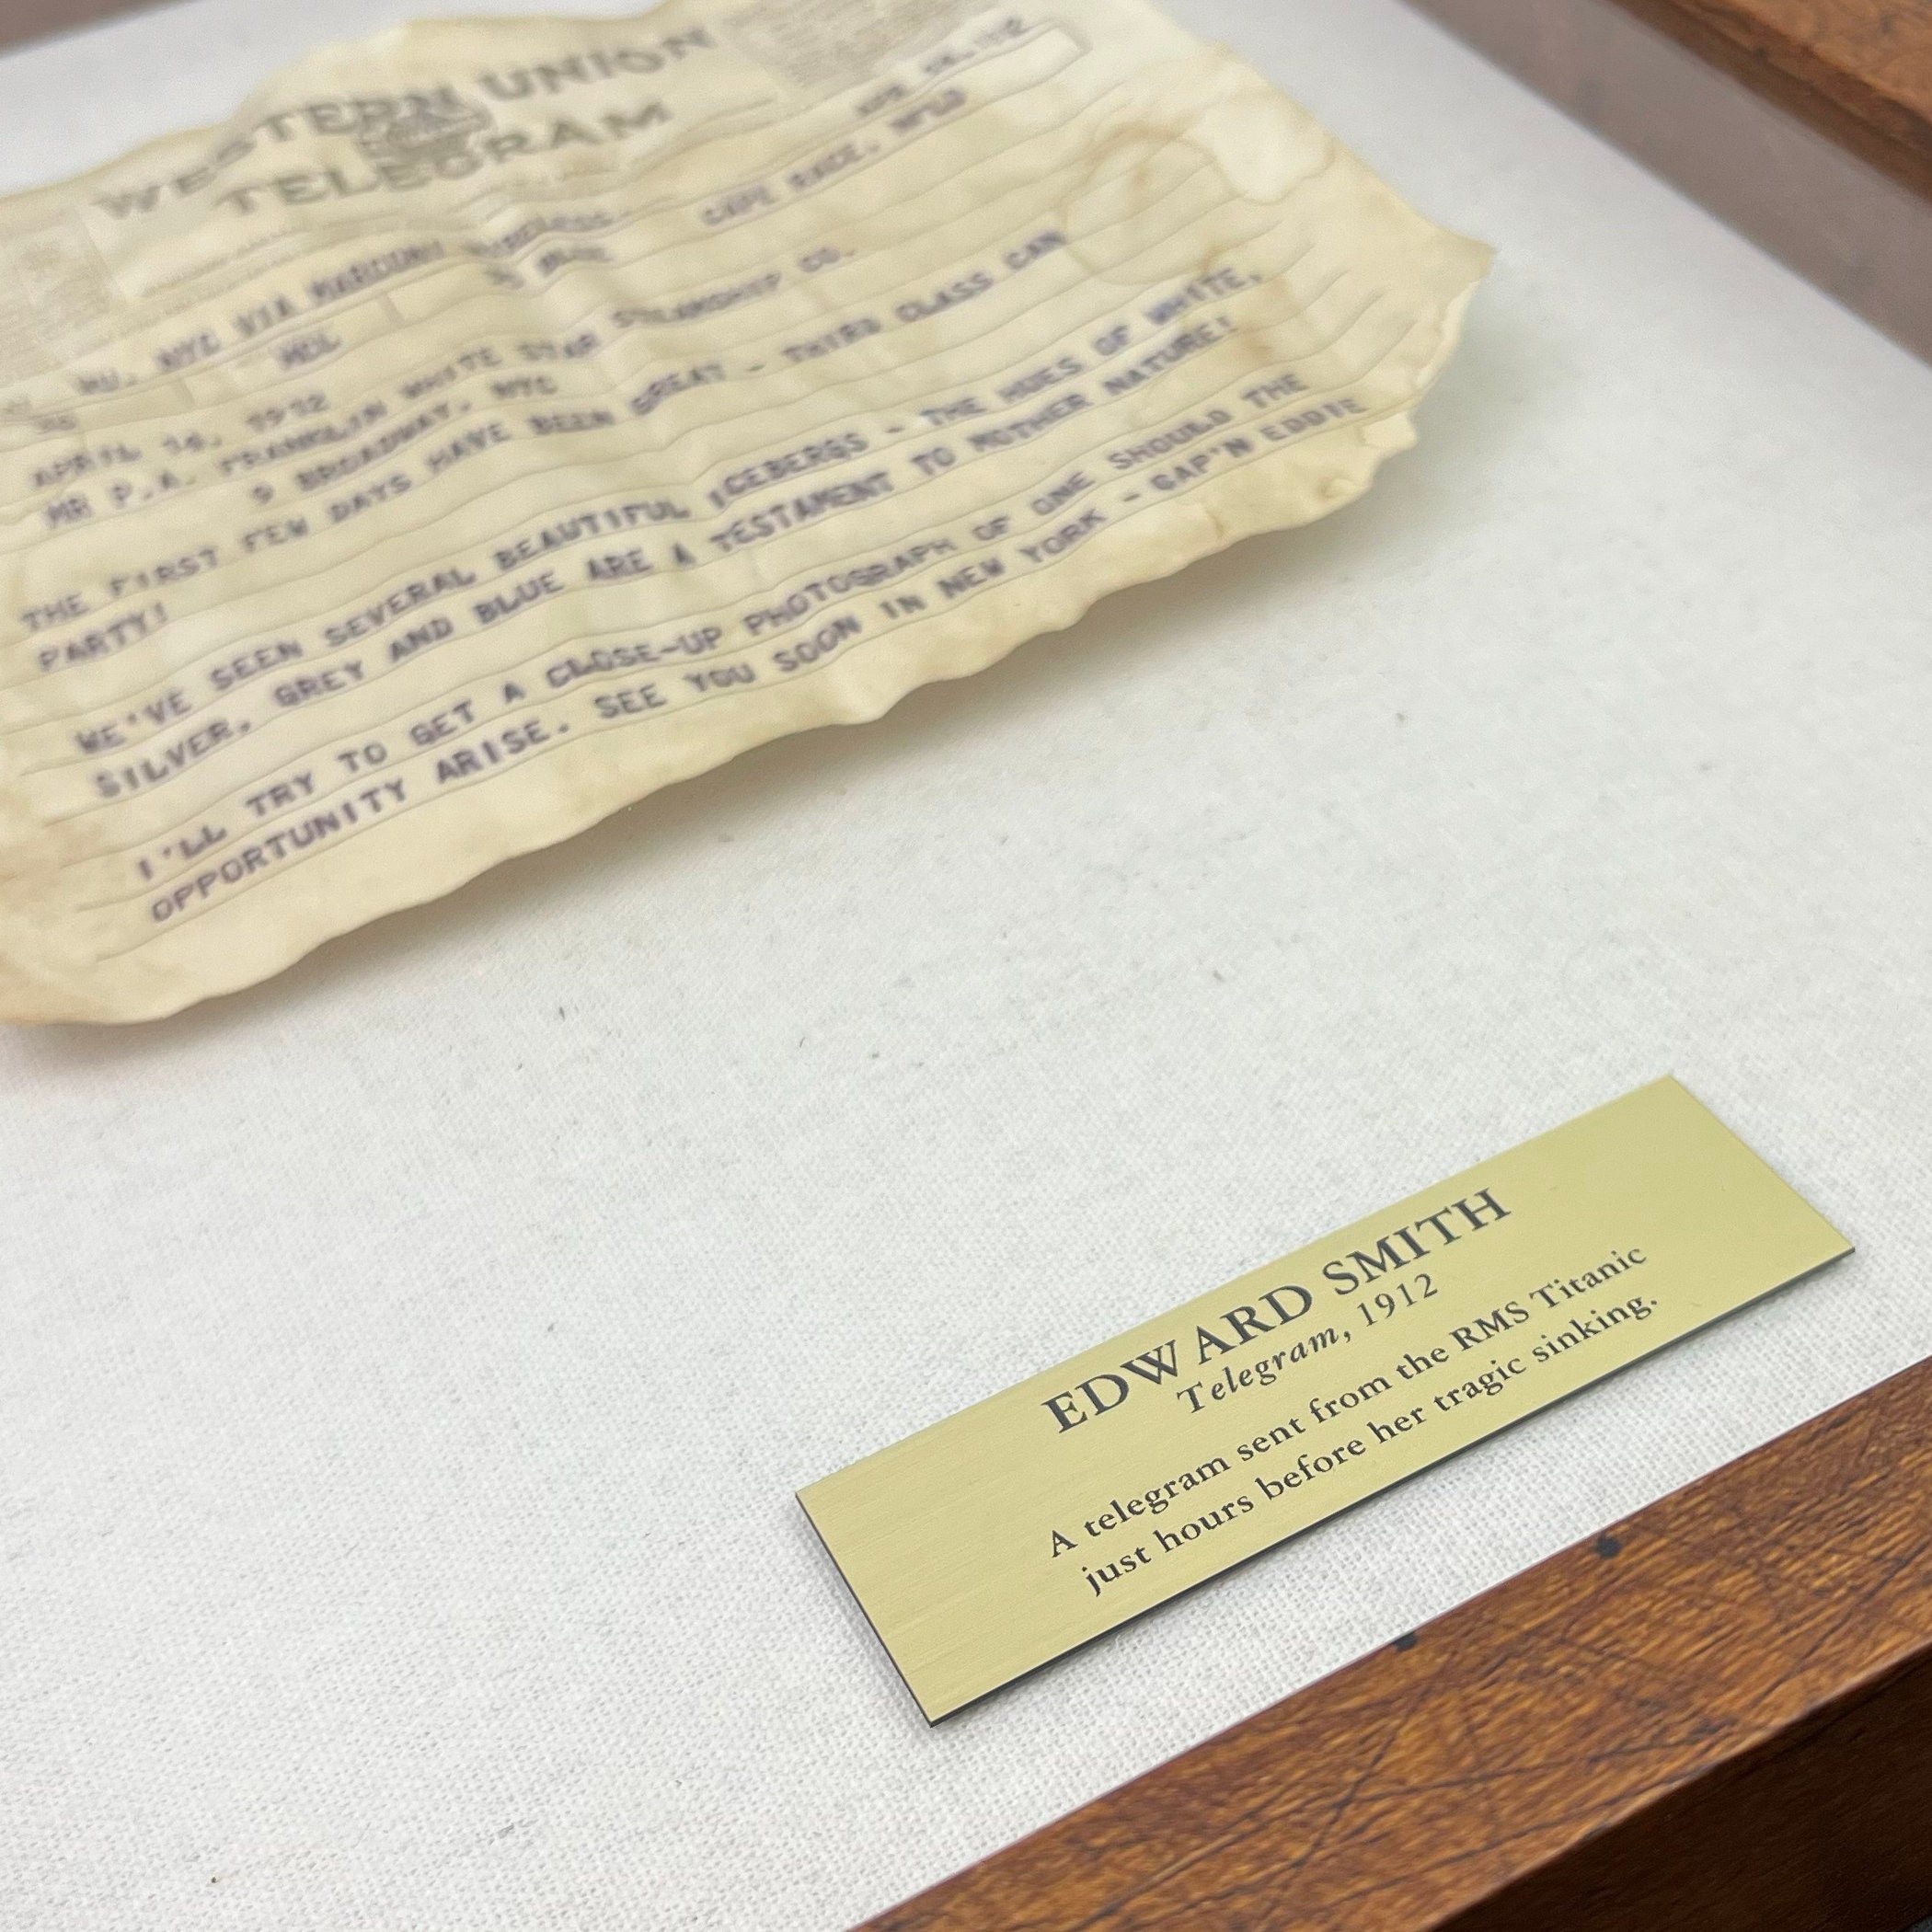 WESTERN UNION
TELEGRAM
NYC VIA MARCONI WIRELESS
CAPE RACE, NFLD
APRIL 14, 1912
MR P.A. FRANKLIN WHITE STAR STEAMSHIP CO.
9 BROADWAY, NYC
THE FIRST FEW DAYS HAVE BEEN GREAT - THIRD CLASS CAN
PARTY!
WE'VE SEEN SEVERAL BEAUTIFUL ICEBERGS - THE HUES OF WHITE,
SILVER, GREY AND BLUE ARE A TESTAMENT TO MOTHER NATURE!
I'LL TRY TO GET A CLOSE-UP PHOTOGRAPH OF ONE SHOULD THE
OPPORTUNITY ARISE. SEE YOU SOON IN NEW YORK - CAP'N EDDIE
EDWARD SMITH
Telegram, 1912
A telegram sent from the RMS Titanic
just hours before her tragic sinking.